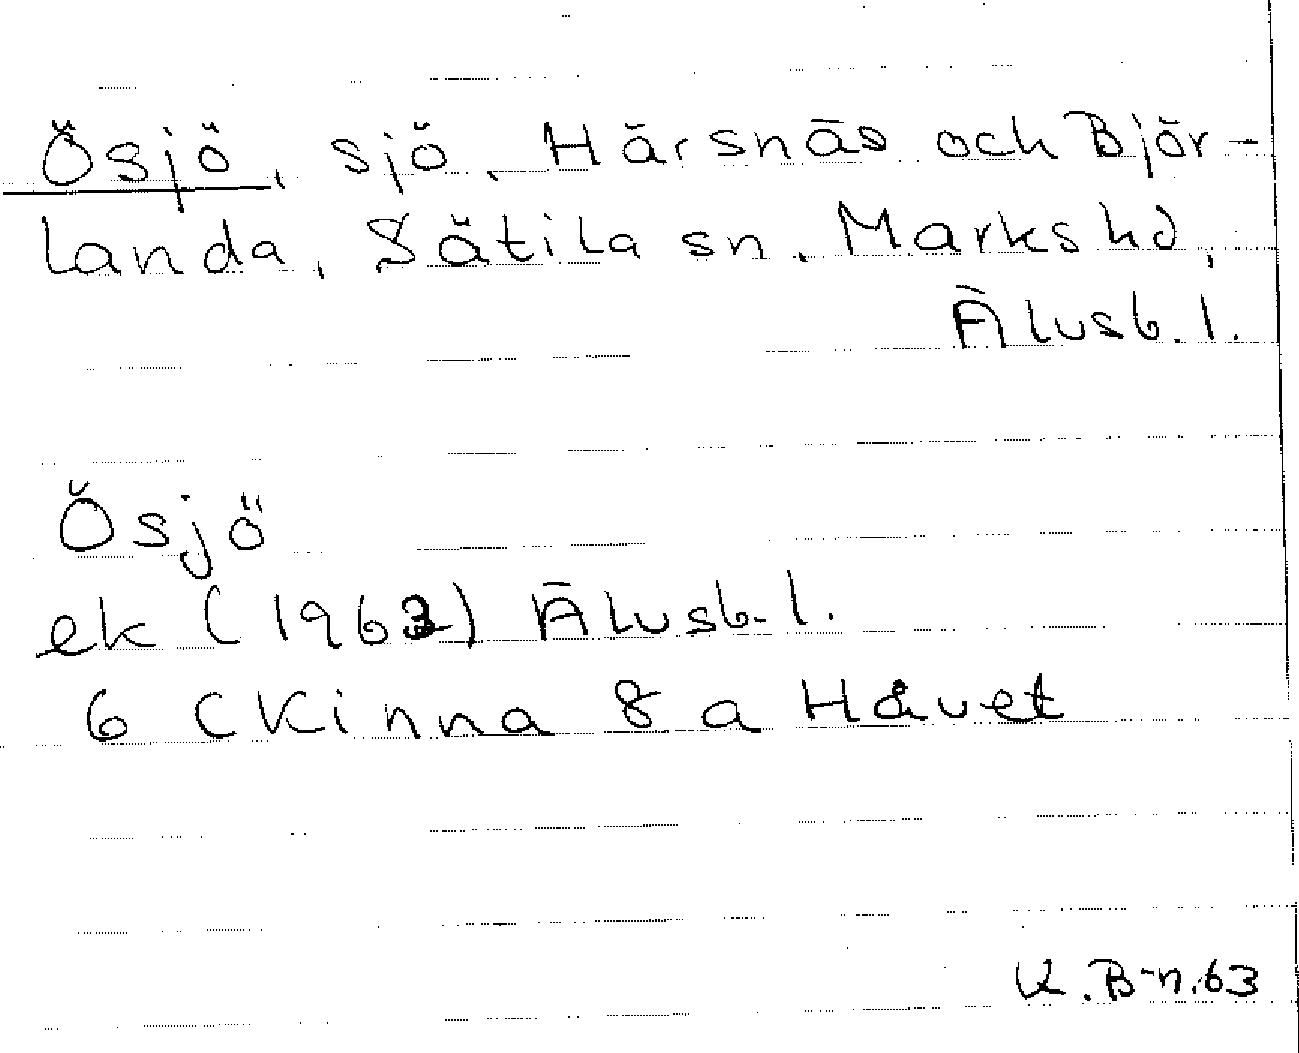 Ösjö, sjö, Härsnäs och Björ-
landa, Sätila sn, Marks hd,
Älvsb. l.
Ösjö
ek (1963) Älvsb. l.
6 C Kinna 8 a Hävet
K. B-n. 63